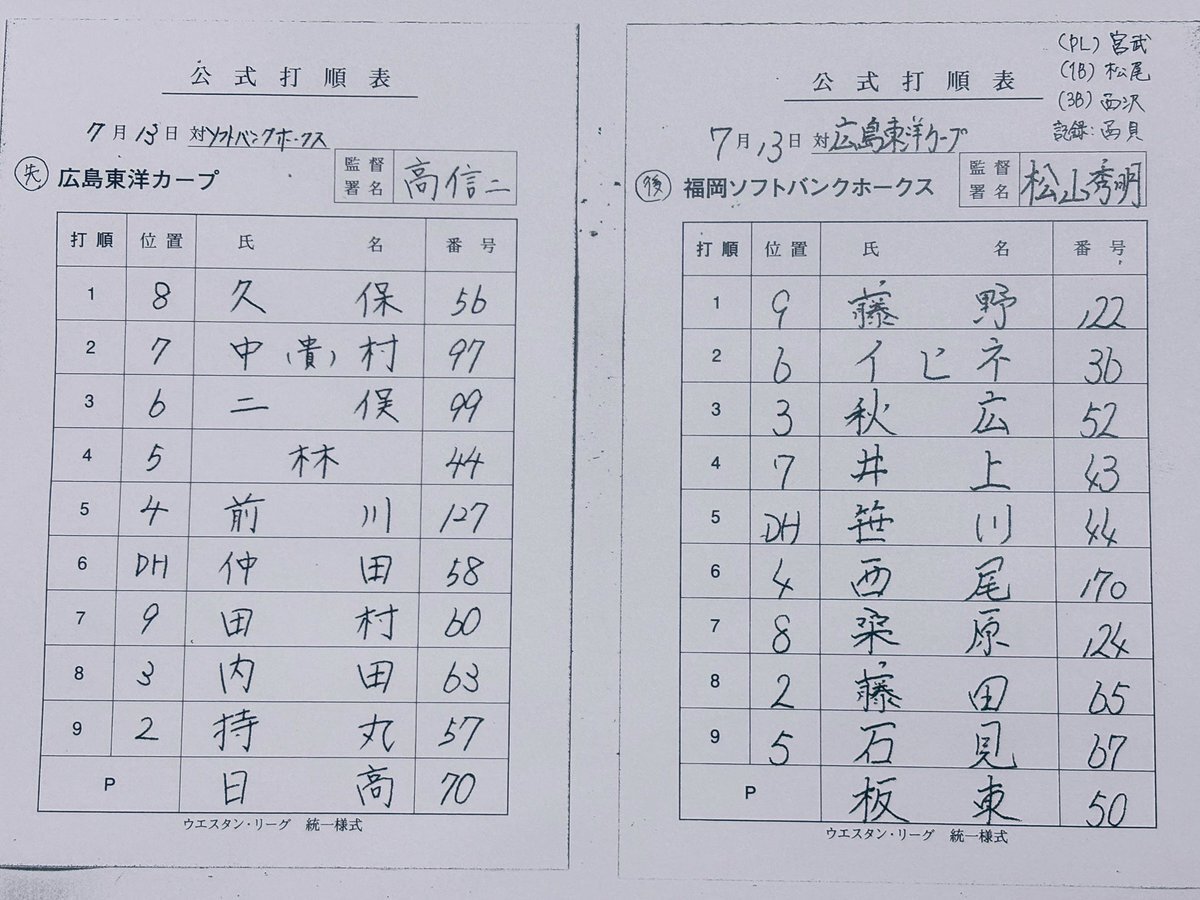 公式打順表
7月13日 対ソフトバンクホークス
先 広島東洋カープ 監督署名 高信二
打順 位置 氏名 番号
1 8 久保 56
2 7 中(貴)村 97
3 6 二俣 99
4 5 林 44
5 4 前川 127
6 DH 仲田 58
7 9 田村 60
8 3 内田 63
9 2 持丸 57
P 日高 70
ウエスタン・リーグ 統一様式
(PL) 宮武
(1B) 松尾
(3B) 西沢
記録:西貝
公式打順表
7月13日 対広島東洋カープ
後 福岡ソフトバンクホークス 監督署名 松山秀明
打順 位置 氏名 番号
1 9 藤野 122
2 6 イヒネ 36
3 3 秋広 52
4 7 井上 43
5 DH 笹川 44
6 4 西尾 170
7 8 桒原 124
8 2 藤田 65
9 5 石見 67
P 板東 50
ウエスタン・リーグ 統一様式